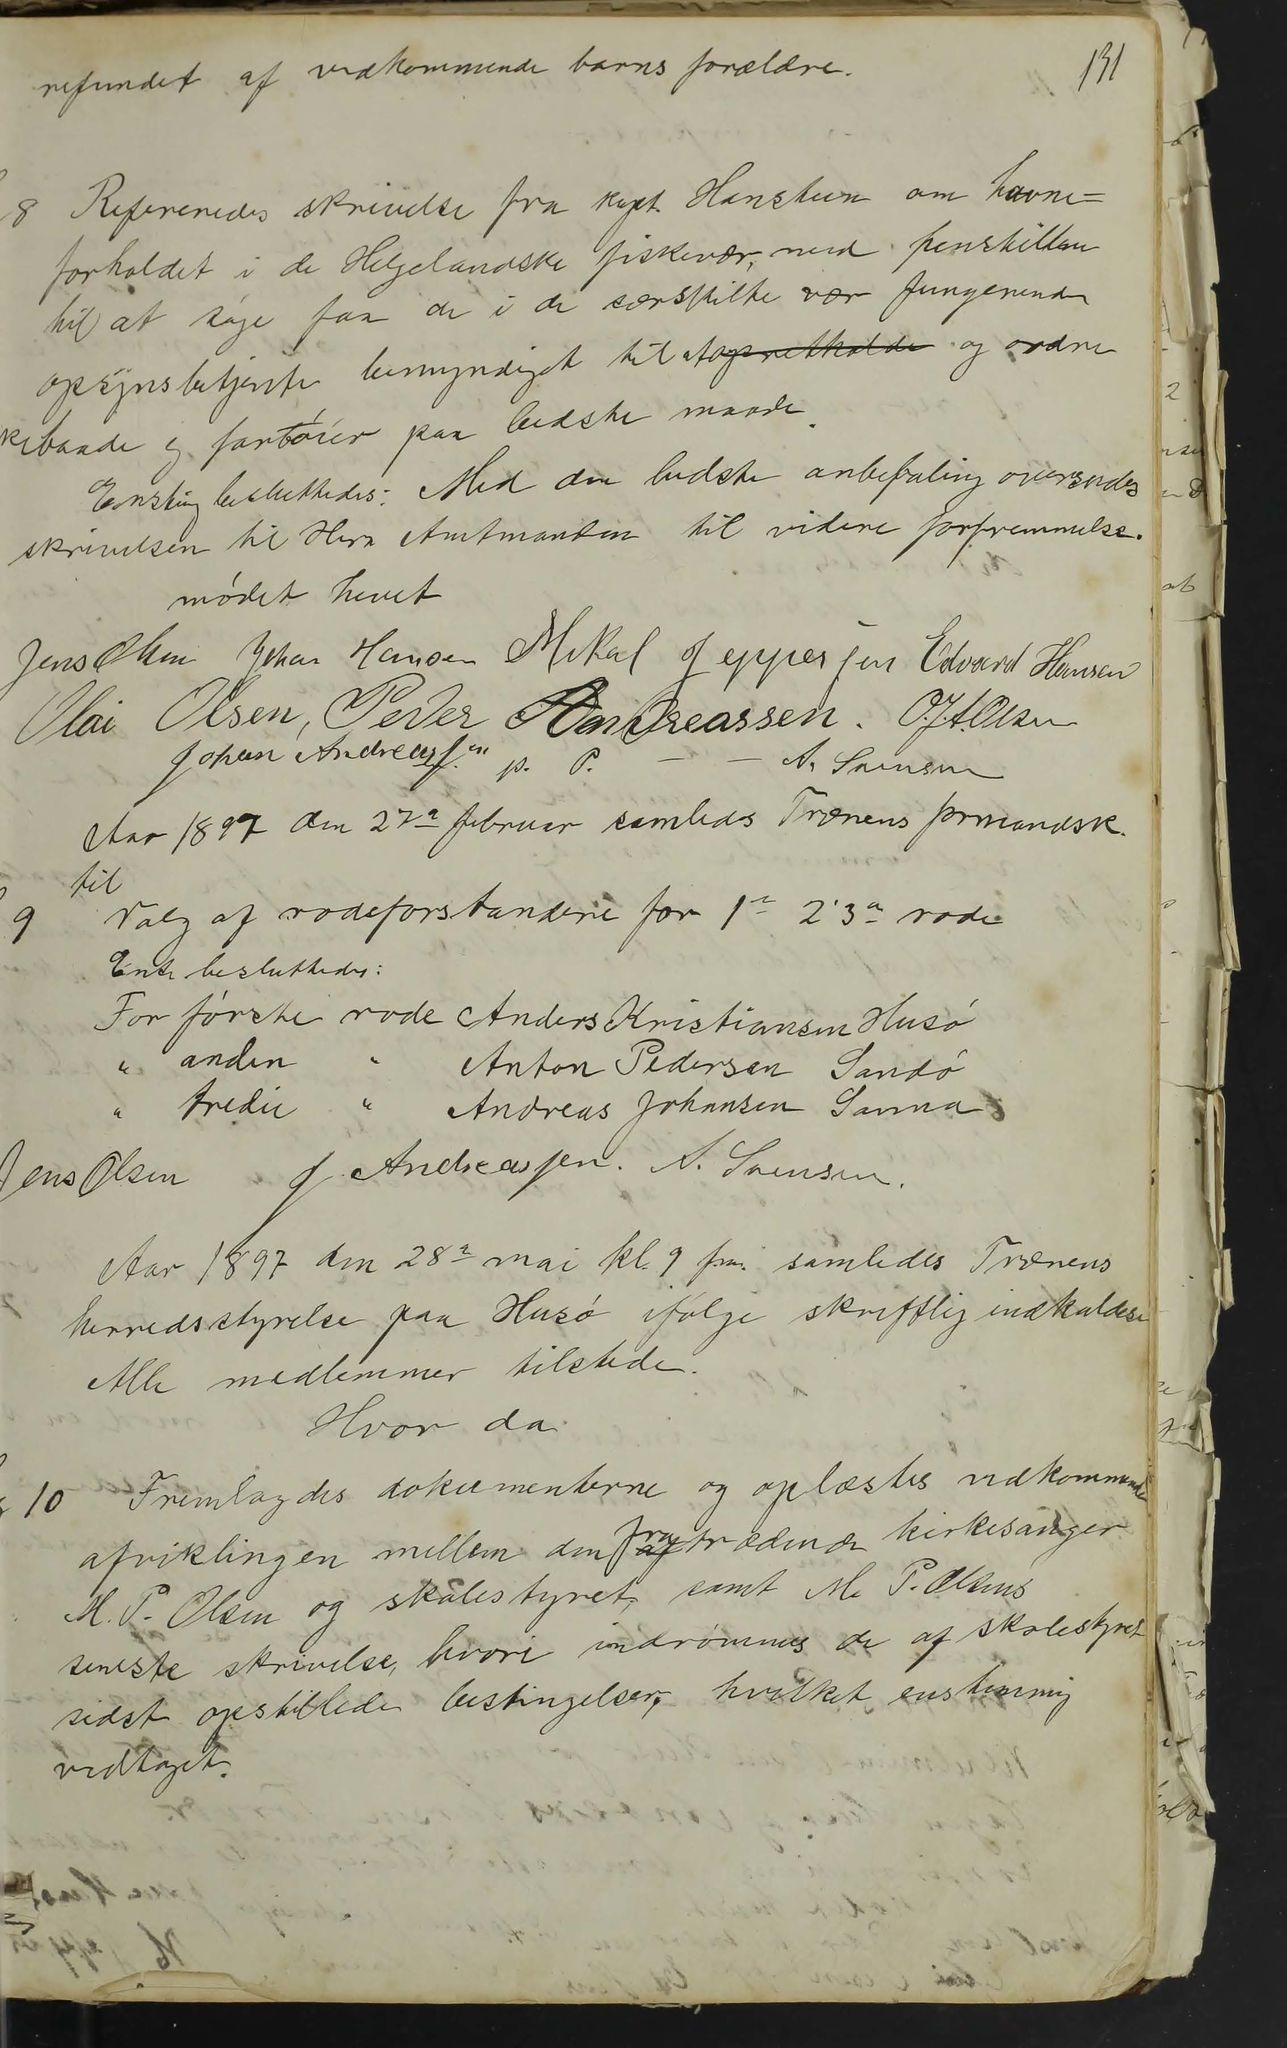 131
refundet af vedkommende barns forældre.
8 Refereredes skrivelse fra kapt. Hansteen om havne=
forholdet i de Helgelandske fiskevær, med henstillen
til at søge faa de i de særskilte vær fungerende
opsynsbetjente bemyndiget til at opretholde og ordne
kebaade og fartøier paa bedste maade.
Enstg besluttedes: Med den bedste anbefaling oversendes
skrivelsen til Herr Amtmanden til videre forfremmelse.
mødet hevet
Jens Olsen Johan Hansen Mikal Jeppesen Edvard Hansen
Olai Olsen, Peder Andreassen. O.J.A. Olsen
Johan Andreassen p. P. — — A. Svensen
Aar 1897 den 27de februar samledes Trænens formandsk.
til
9 Valg af rodeforstandere for 1ste 2' 3de rode
Enst. besluttedes:
For første rode Anders Kristiansen Husø
" anden " Anton Pedersen Sandø
" tredie " Andreas Johansen Sanna
Jens Olsen J. Andreassen. A. Svensen.
Aar 1897 den 28de mai kl. 9 fm. samledes Trænens
herredsstyrelse paa Husø ifølge skriftlig indkaldelse
Alle medlemmer tilstede.
Hvor da
§ 10 Fremlagdes dokumenterne og oplæstes vedkommende
afviklingen mellem den fratrædende kirkesanger
M. P. Olsen og skolestyret, samt M. P. Olsens
seneste skrivelse, hvori indrømmes de af skolestyret
sidst opstillede bestingelser, hvilket enstemmig
vedtaget.